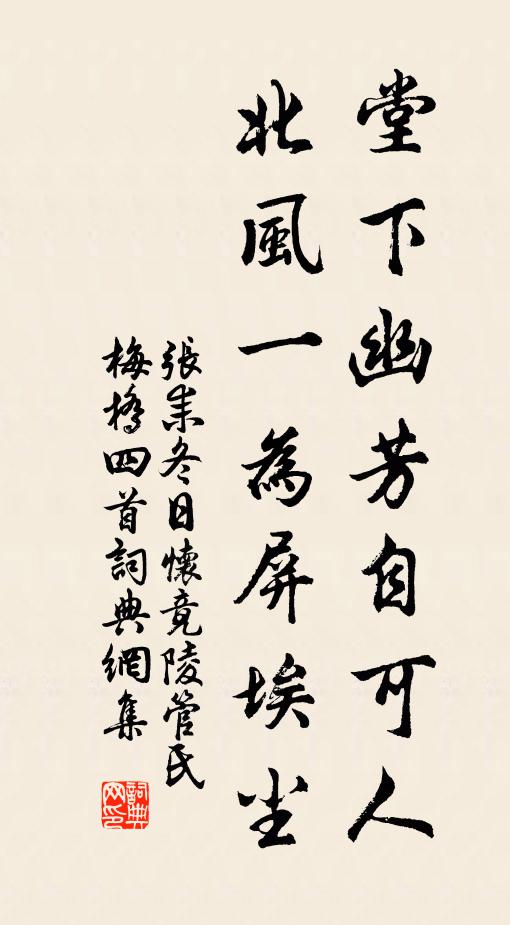 堂下幽芳自可人
北風一為屏埃尘
張耒冬日懷竟陵管氏
梅橋四首詞典網集
詞典网印